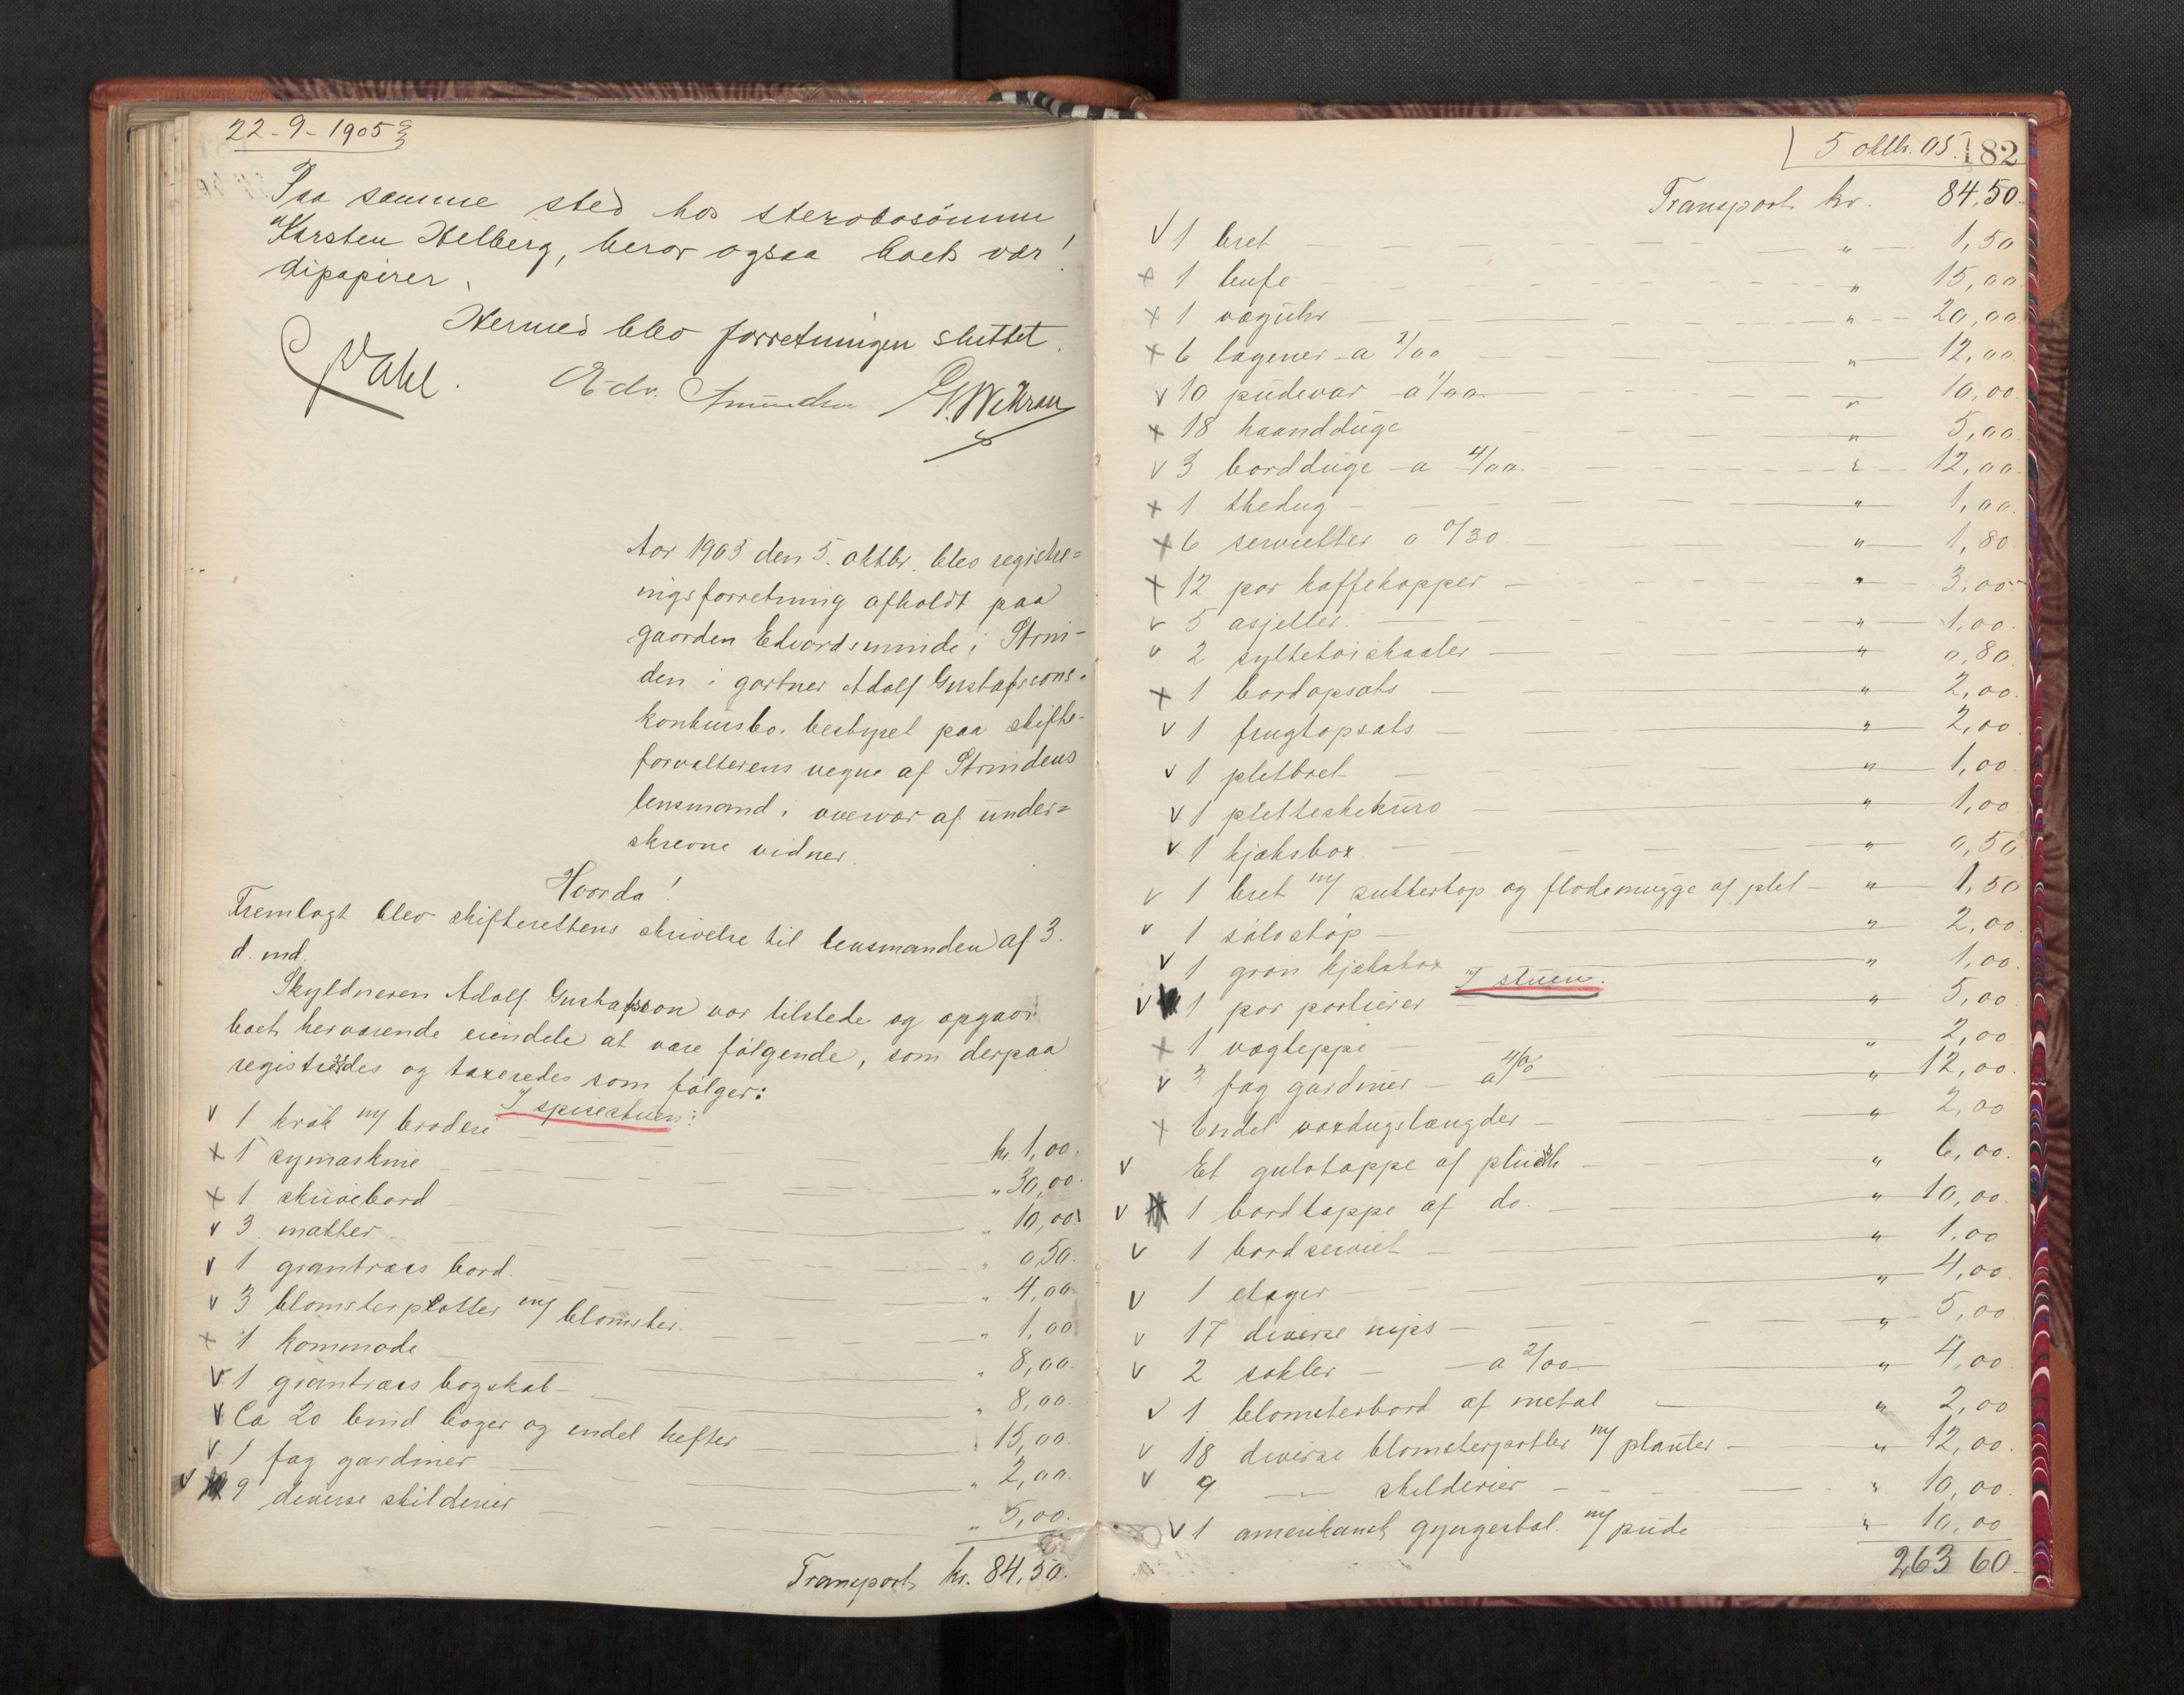 22-9-1905
Paa samme sted hos stervbosönnen
Karsten Helberg, beror ogsaa boets vær!
dipapirer.
Hermed blev forretningen sluttet.
Wahl. Edv. Amundsen
Aar 1905 den 5. oktbr. blev registre=
ringsforretning afholdt paa
gaarden Edvardsminde i Strin-
den i gartner Adolf Gustafssons
konkursbo, bestyret paa skifte-
forvalterens vegne af Strindens
lensmand i overvær af under=
skrevne vidner.
Hvorda!
Fremlagt blev skifterettens skrivelse til lensmanden af 3.
d. md.
Skyldneren Adolf Gustafsson var tilstede og opgav
boets herværende eiendele at være følgende, som derpaa
registreredes og taxeredes som følger:
I spisestuen:
v 1 krak m/ broderi — kr. 1,00.
x 1 symaskine — " 30,00.
x 1 skrivebord — " 10,00
v 3 matter — " 0,50.
v 1 grantræes bord. — " 4,00
v 3 blomsterpotter m/ blomster. — " 1,00
x 1 kommode — " 8,00.
v 1 grantræes bogskab — " 8,00.
v Ca 20 bind bøger og endel hefter — " 15,00.
v 1 fag gardiner — " 2,00.
v 9 diverse skilderier — " 5,00.
Transport kr. 84,50.
5 oktb. 05. 182
Transport kr. 84,50.
v 1 bret — " 1,50
x 1 bufe — " 15,00
x 1 væguhr — " 20,00
x 6 lagener a 2/00 — " 12,00.
v 10 pudevar a 1/00 — " 10,00
x 18 haandduge — " 5,00.
v 3 bordduge a 4/00. — " 12,00.
x 1 thedug — " 1,00.
x 6 servietter a 0/30 — " 1,80
x 12 par kaffekopper — " 3,00
v 5 asjetter. — " 1,00.
v 2 syltetøiskaaler — " 0,80.
x 1 bordopsats — " 2,00.
v 1 frugtopsats — " 2,00.
v 1 pletbret — " 1,00.
v 1 pletteskekurv — " 1,00
v 1 kjæksbox. — " 0,50
v 1 bret m/ sukkerkop og flødemugge af plet — " 1,50
v 1 sølvstøp — " 2,00.
v 1 grøn kjæksbox — " 1,00.
I stuen.
v 1 par portierer — " 5,00
x 1 vægteppe — " 2,00
v 3 fag gardiner — a 4/00 — " 12,00.
x Endel voxdugslængder — " 2,00
v Et gulvtæppe af plusch — " 6,00.
v 1 bordtæppe af do. — " 10,00.
v 1 bordserviet — " 1,00
v 1 etager — " 4,00.
v 17 diverse nips — " 5,00
v 2 sokler — a 2/00 — " 4,00
v 1 blomsterbord af metal — " 2,00
v 18 diverse blomsterpotter m/ planter — " 12,00.
v 9 —"— skilderier — " 10,00.
v 1 amerikansk gyngestol m/ pude " 10,00
263 60